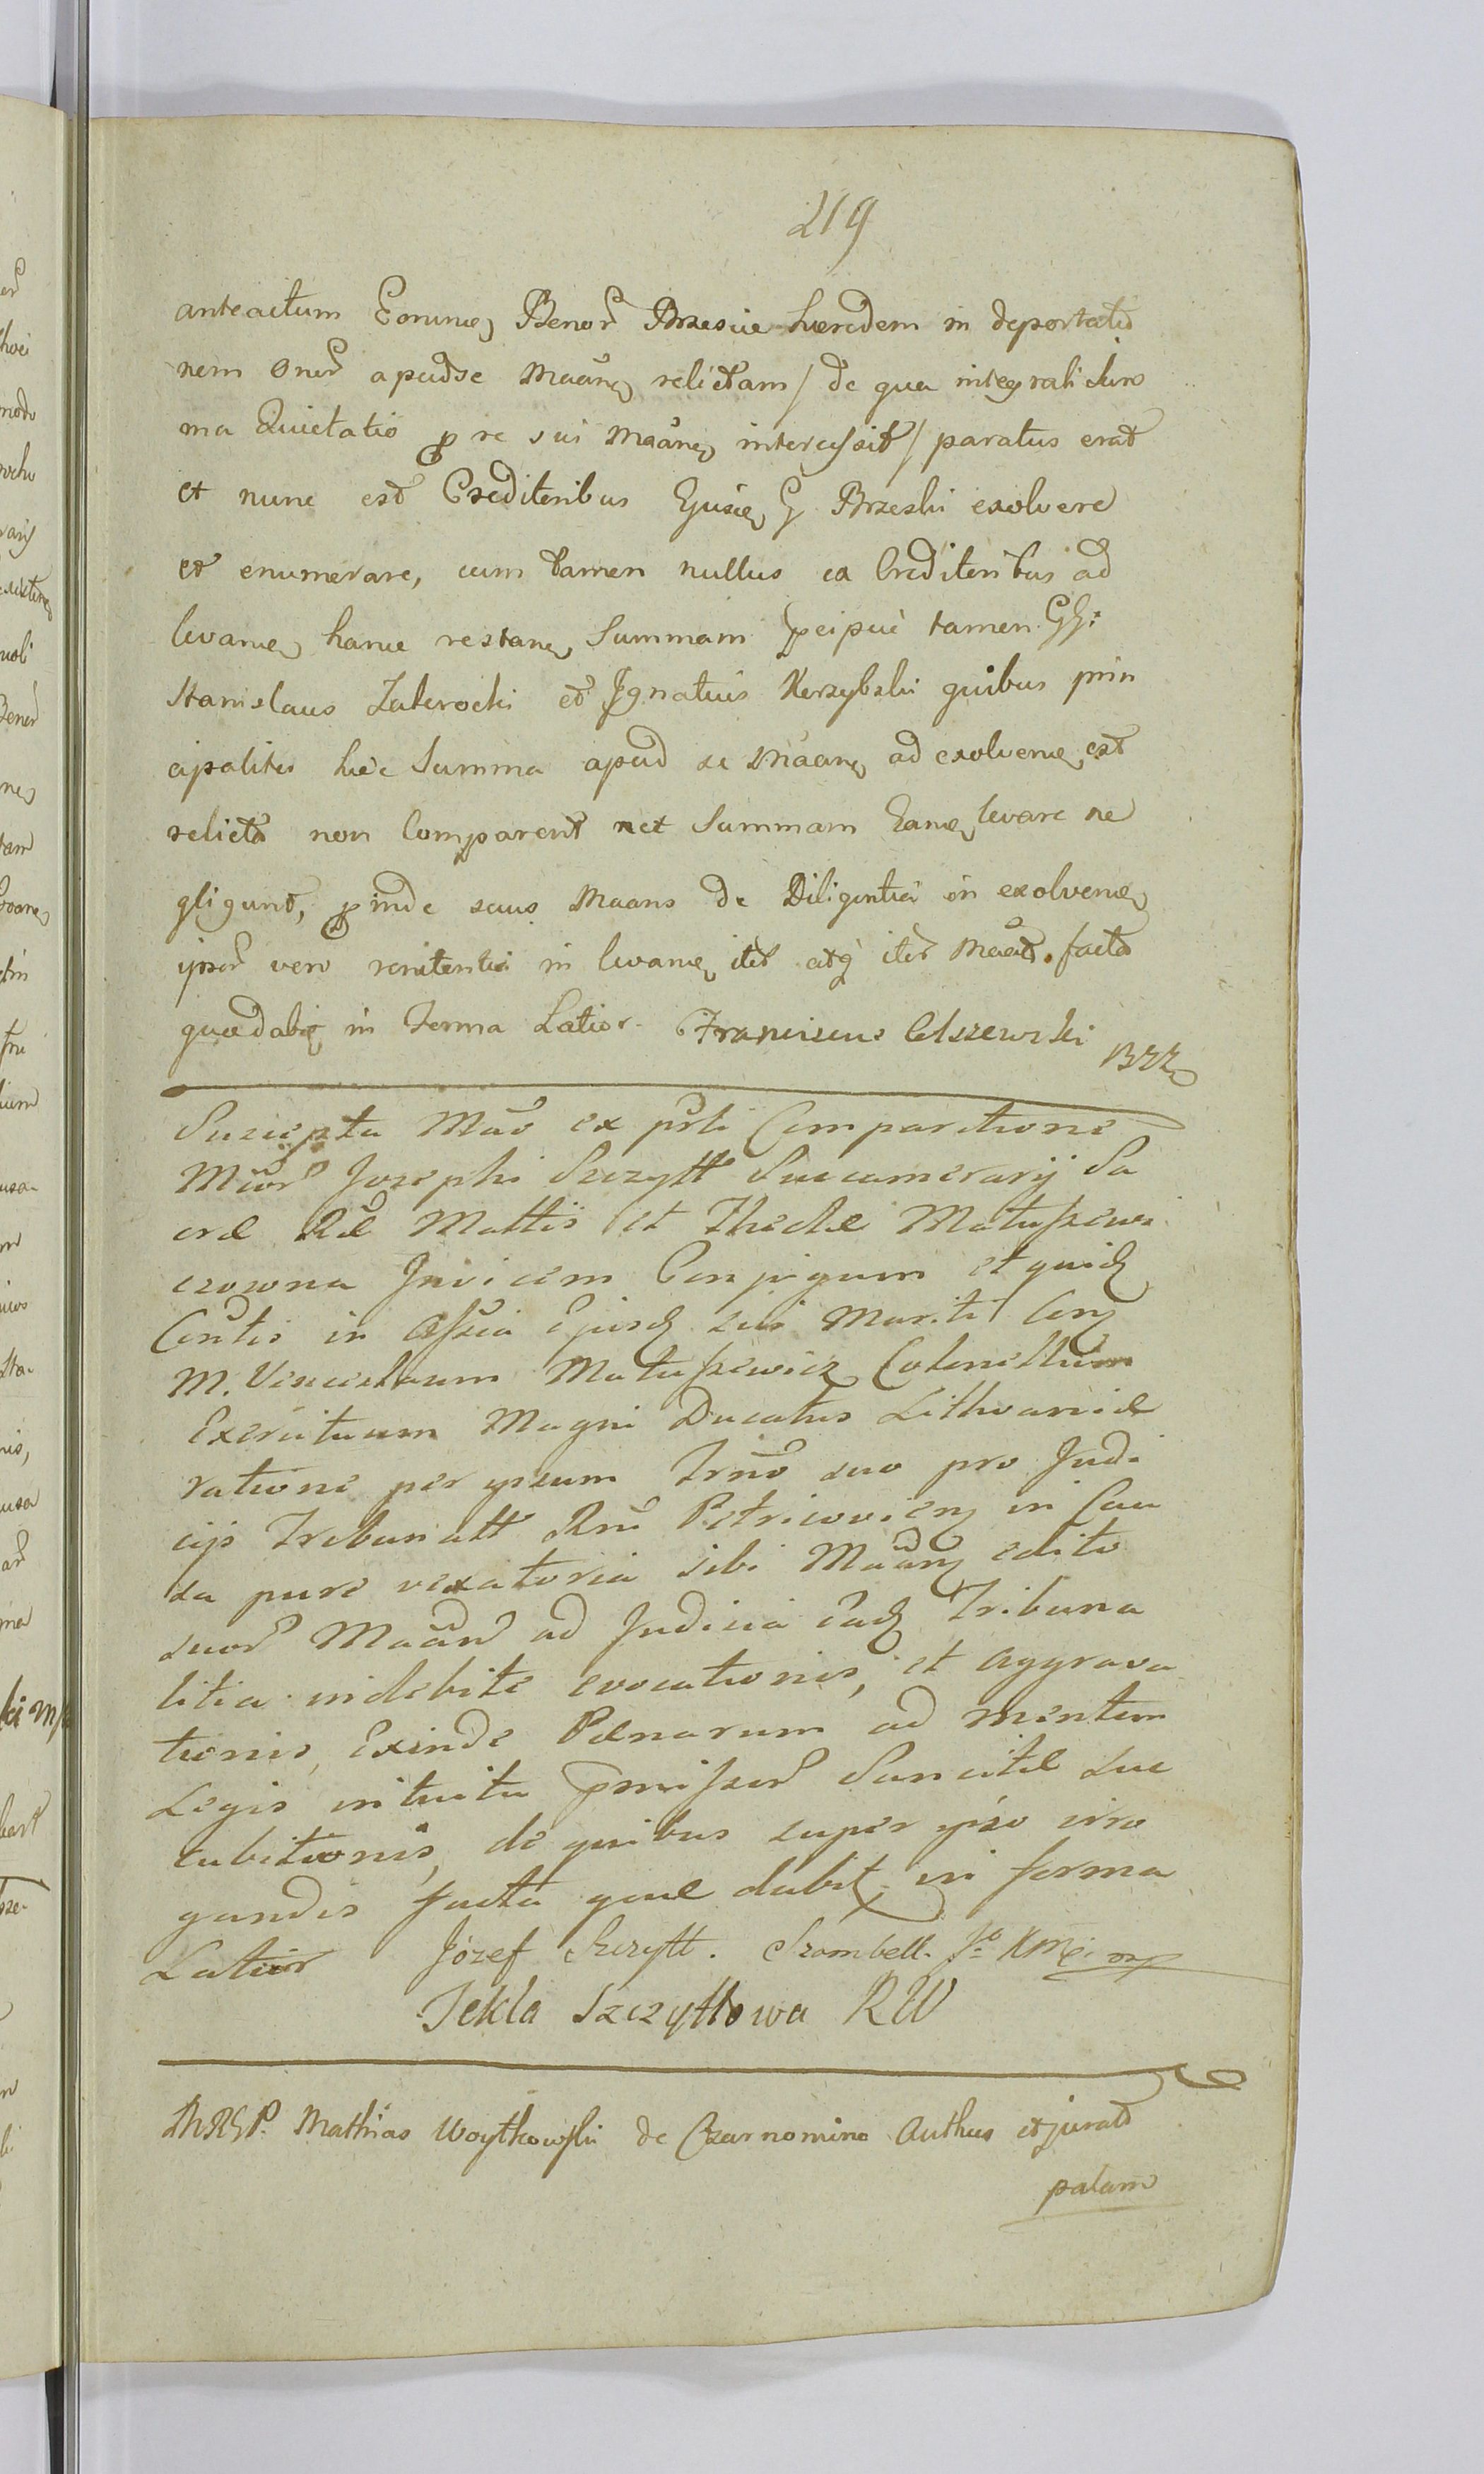 219
anteactum Eorund Benor Brzescie hæredem in deportatio
nem oner apud se Maane relictam / de qua integrali sum
ma Quietatio pre sui Maane intercessit / paratus erat
et nunc est Creditoribus Ejusd G Brzeski exolvere
et enumerare, cum tamen nullus ex Creditoribus ad
levand hanc restan Summam pcipuè tamen GG:
Stanislaus Zakrocki et Ignatius Karzybski quibus prin
cipaliter hæc Summa apud se Maane ad exolvend est
relicta non Comparent nec Summam Eand levare ne
gligunt, pinde suus Maans de Diligentia in exolvend
ipsor vero renitentia in levand iter atq iter Maat. facta
quæ dabit in forma Latior. Franciscus Olszewski
Suscepta Mão ex psti Comparitione
Mcor Josephi Szczytt Succamerarij Sa
cræ Ræ Mattis et Theclæ Matuszewi
czowna Invicem Conjugum et quid
Contis in Assia Ejusd sui Mariti Con
M. Venceslaum Matuszewicz Colonellum
Exercituum Magni Ducatus Lithvaniæ
ratione per ipsum Trno suo pro Judi
cijs Tribunatt Rni Petricovien in Cau
sa pure vexatoria sibi Maan edito
suor Maan ad Judicia ead Tribuna
litia indebite evocationis, et aggrava
tionis, Exinde Pænarum ad mentem
Legis intuitu pmissor Sancitæ suc
cubitionis, de quibus super ipso irro
gandis facta quæ dabit in forma
Latior Józef Szczytt. Szambell. J K Mci mp
Tekla Szczyttowa RW
Mathias Woytkowski de Czarnomino Authus et jurat
palam